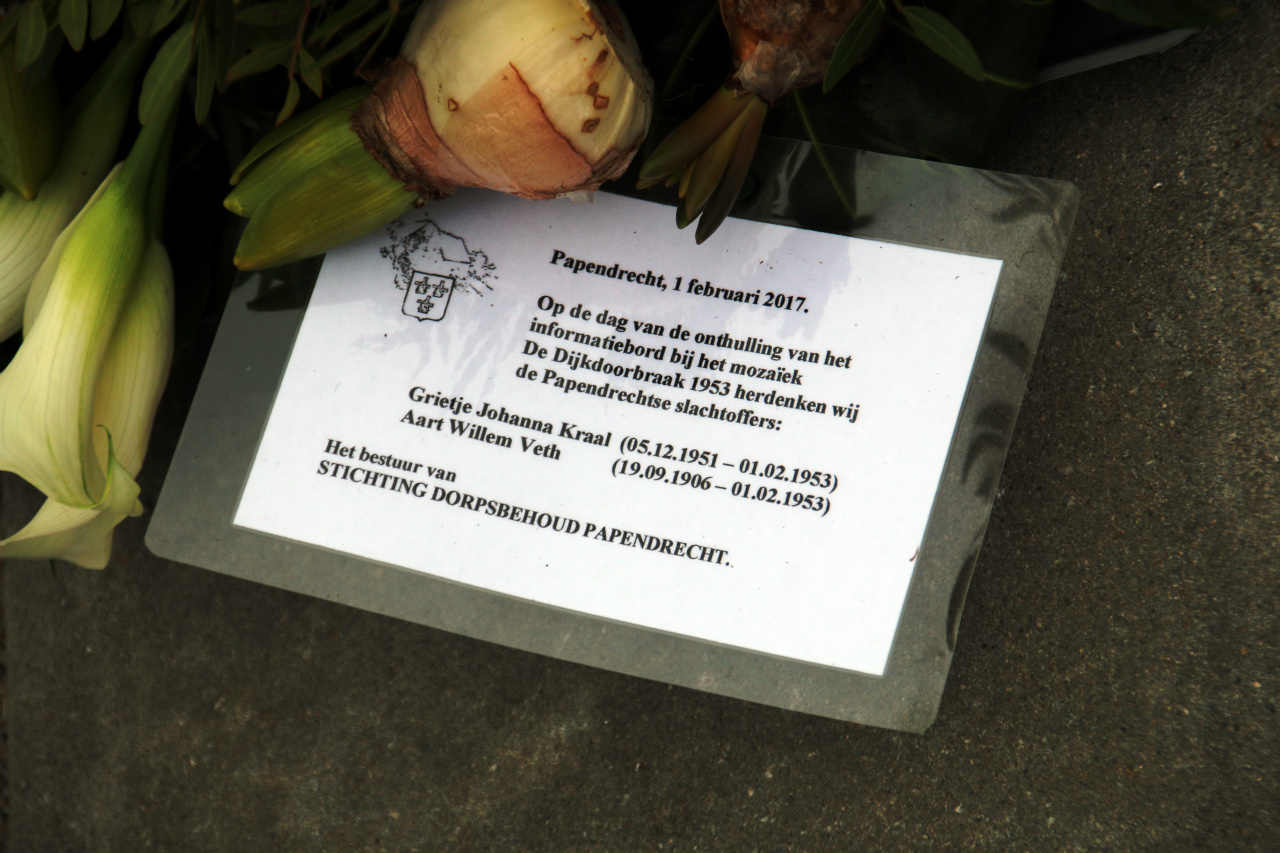 Papendrecht, 1 februari 2017.
Op de dag van de onthulling van het
informatiebord bij het mozaïek
De Dijkdoorbraak 1953 herdenken wij
de Papendrechtse slachtoffers:
Grietje Johanna Kraal (05.12.1951 – 01.02.1953)
Aart Willem Veth (19.09.1906 – 01.02.1953)
Het bestuur van
STICHTING DORPSBEHOUD PAPENDRECHT.